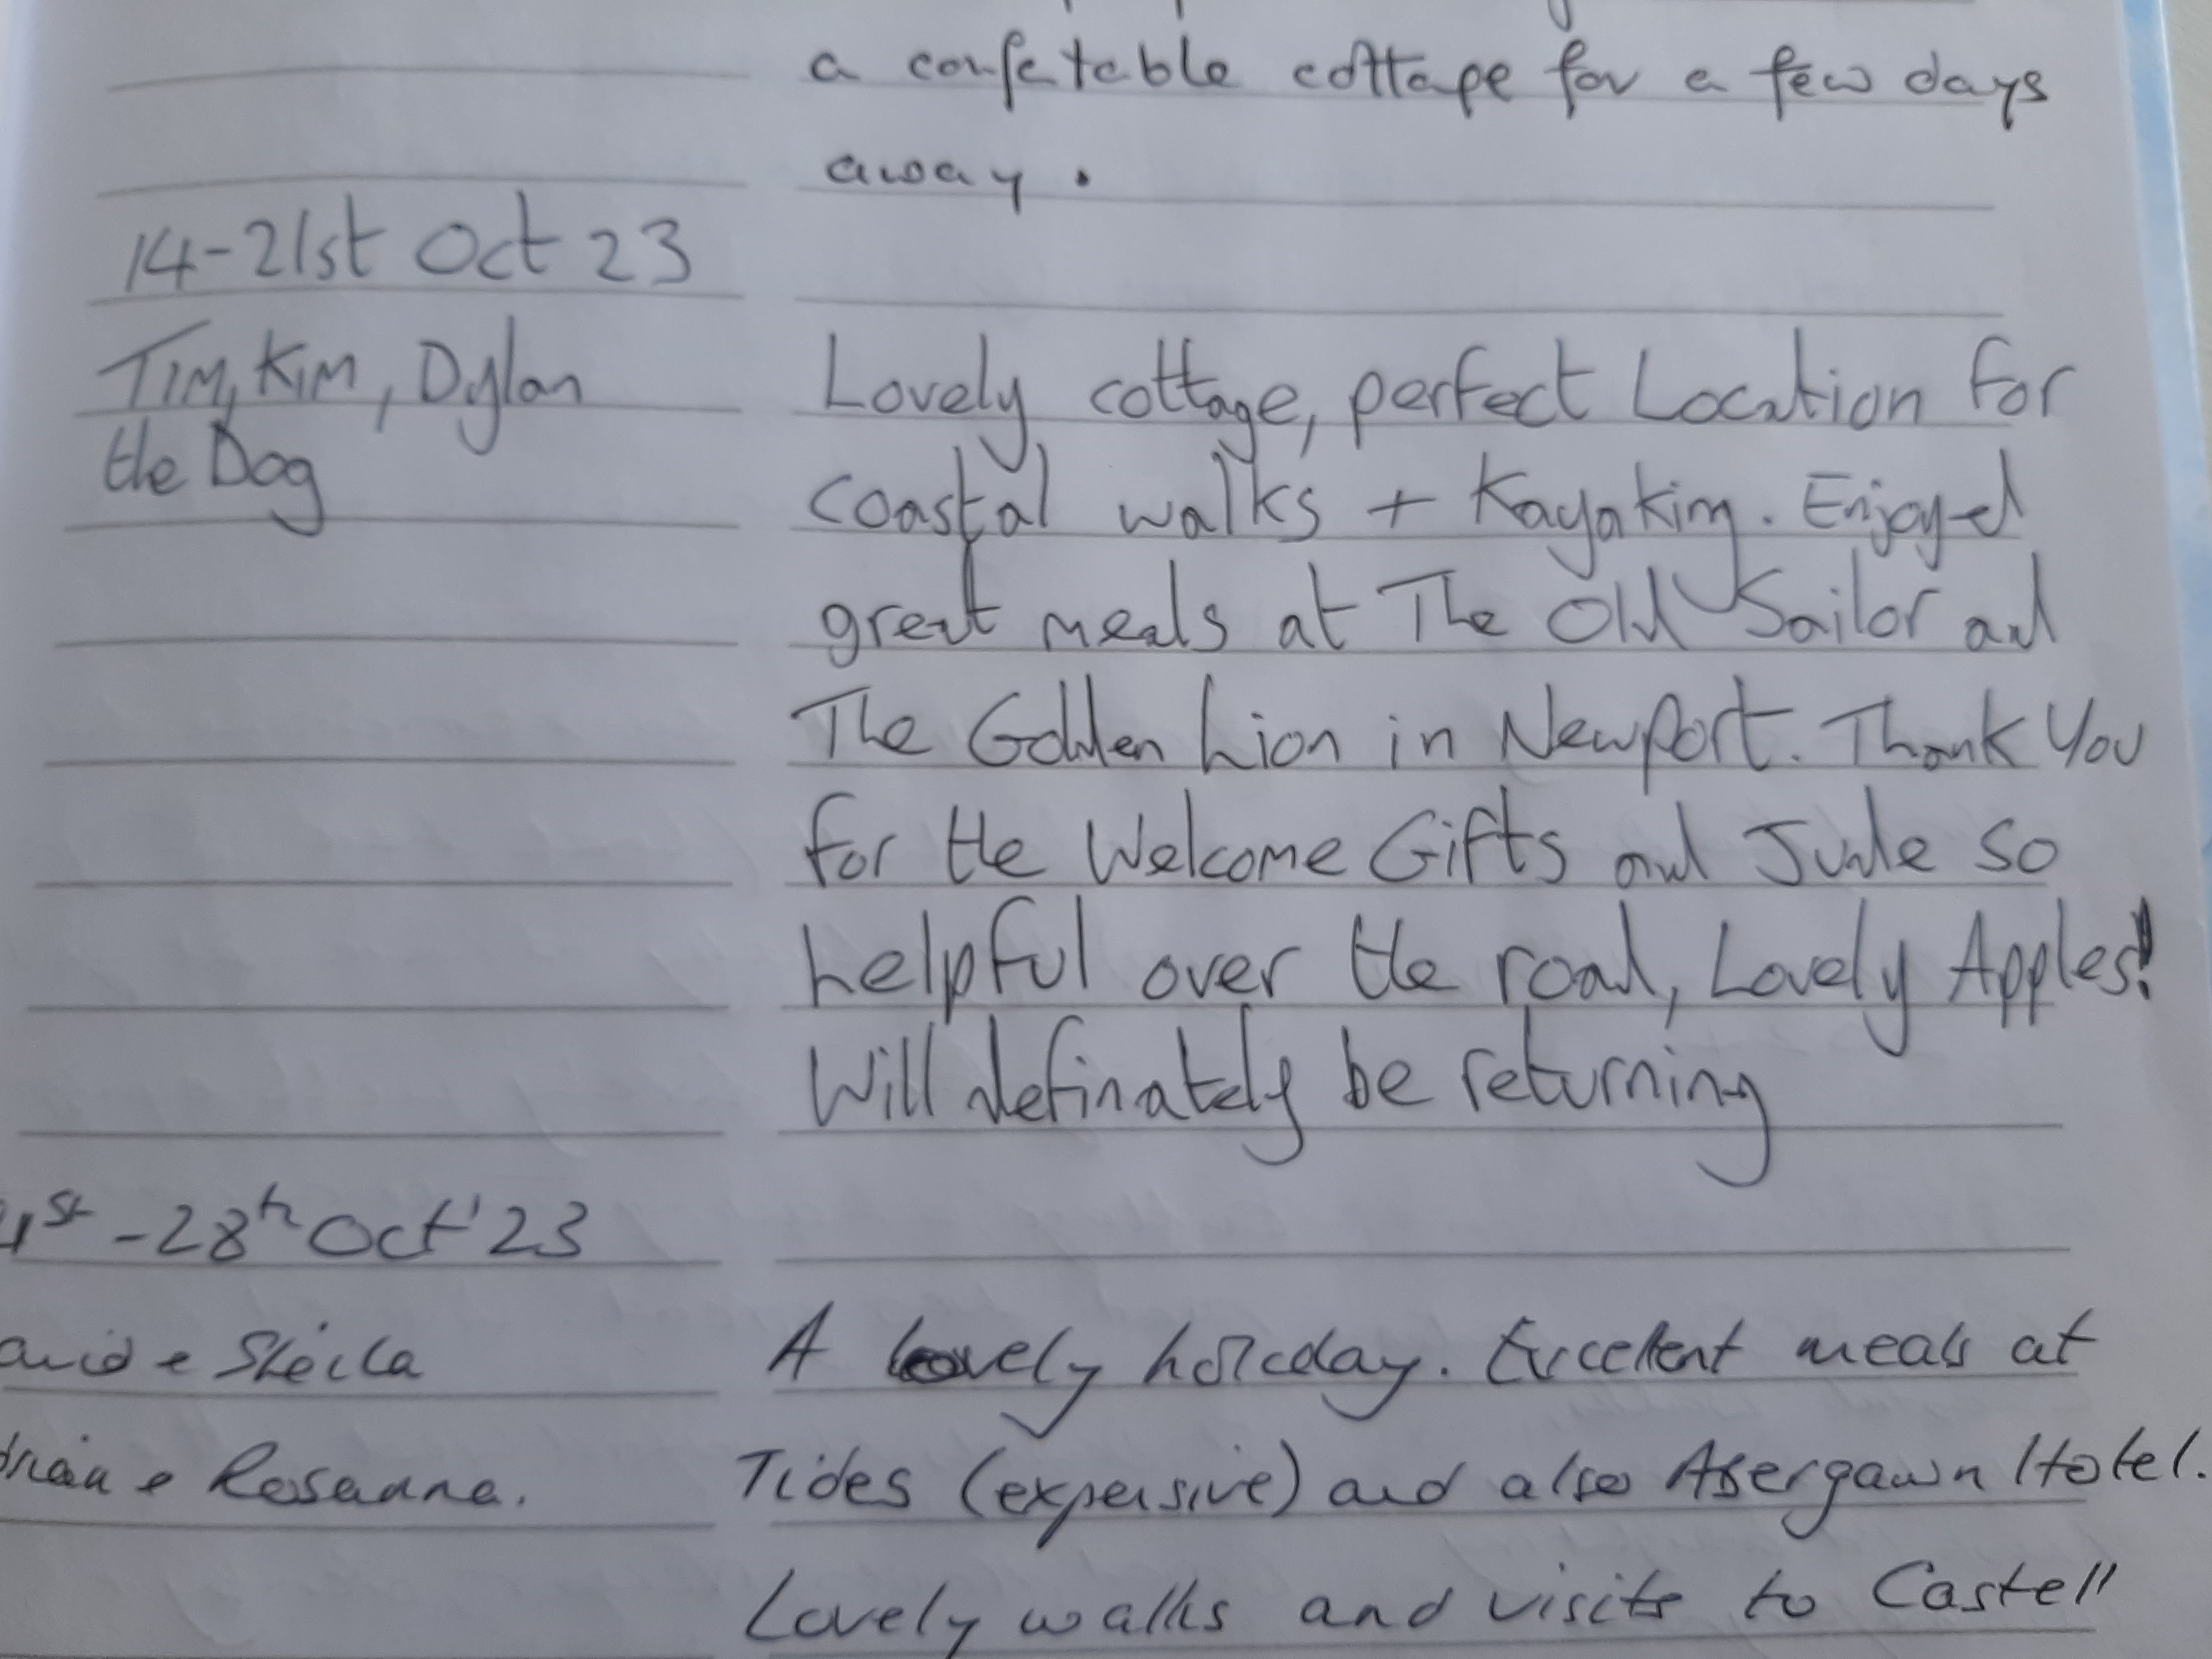 a confetable cottage for a few days
away.
14-21st Oct 23
Tim, Kim, Dylan
the Dog
Lovely cottage, perfect Location for
coastal walks + Kayaking. Enjoyed
great meals at The Old Sailor and
The Golden Lion in Newport. Thank You
for the Welcome Gifts and Jude so
helpful over the road, Lovely Apples!
Will definately be returning
1st - 28th Oct '23
& Sheila
A lovely holiday. Excellent meals at
& Roseanne.
Tides (expensive) and also Abergawn Hotel.
Lovely walks and visits to Castell